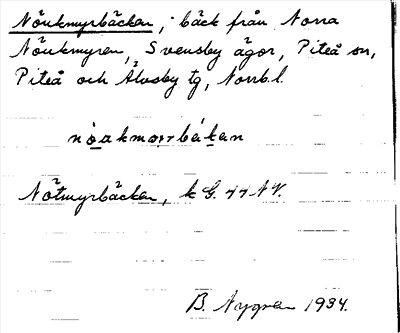 Nöukmyrbäcken, bäck från Norra
Nöukmyren, Svensby ägor, Piteå sn,
Piteå och Älvsby tg, Norrb.l.
nòakmorrbékan
Nötmyrbäcken, k G. 44 NV.
B. Nygren 1934.